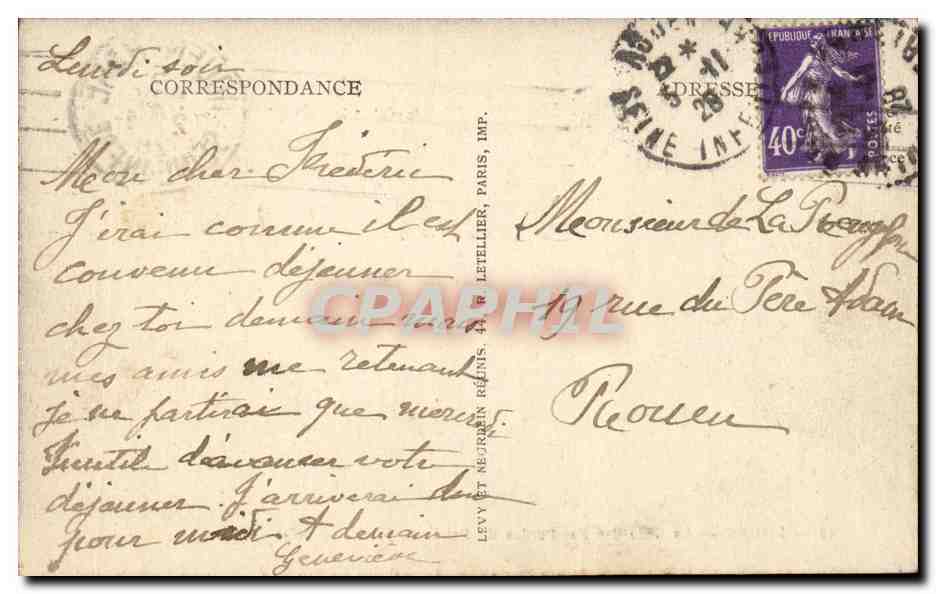 Lundi soir
CORRESPONDANCE
Mon cher Frédéric
J'irai comme il est
convenu déjeuner
chez toi demain mais
mes amis me retenant
je ne partirai que mercredi
Inutile d'avancer votre
déjeuner. J'arriverai donc
pour midi. A demain
Geneviève
LEVY ET NEURDEIN RÉUNIS. 44, R. LETELLIER, PARIS, IMP.
ADRESSE
RÉPUBLIQUE FRANÇAISE
40c
POSTES
ROUEN
11
28
SEINE INFRE
Monsieur de La
19 rue du Père Adam
Rouen
CPAPHIL